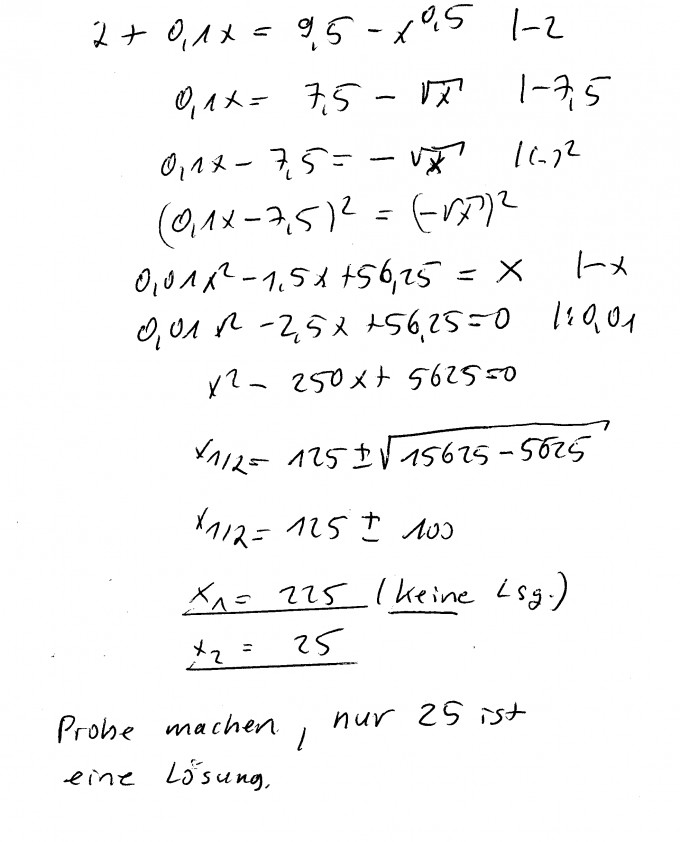 2 + 0,1x = 9,5 - x^0,5 |-2
0,1x = 7,5 - √x |-7,5
0,1x - 7,5 = - √x |(..)²
(0,1x - 7,5)² = (-√x)²
0,01x² - 1,5x + 56,25 = x |-x
0,01x² - 2,5x + 56,25 = 0 |:0,01
x² - 250x + 5625 = 0
x1/2 = 125 ± √15625 - 5625
x1/2 = 125 ± 100
x₁ = 225 (keine Lsg.)
x₂ = 25
Probe machen, nur 25 ist
eine Lösung.